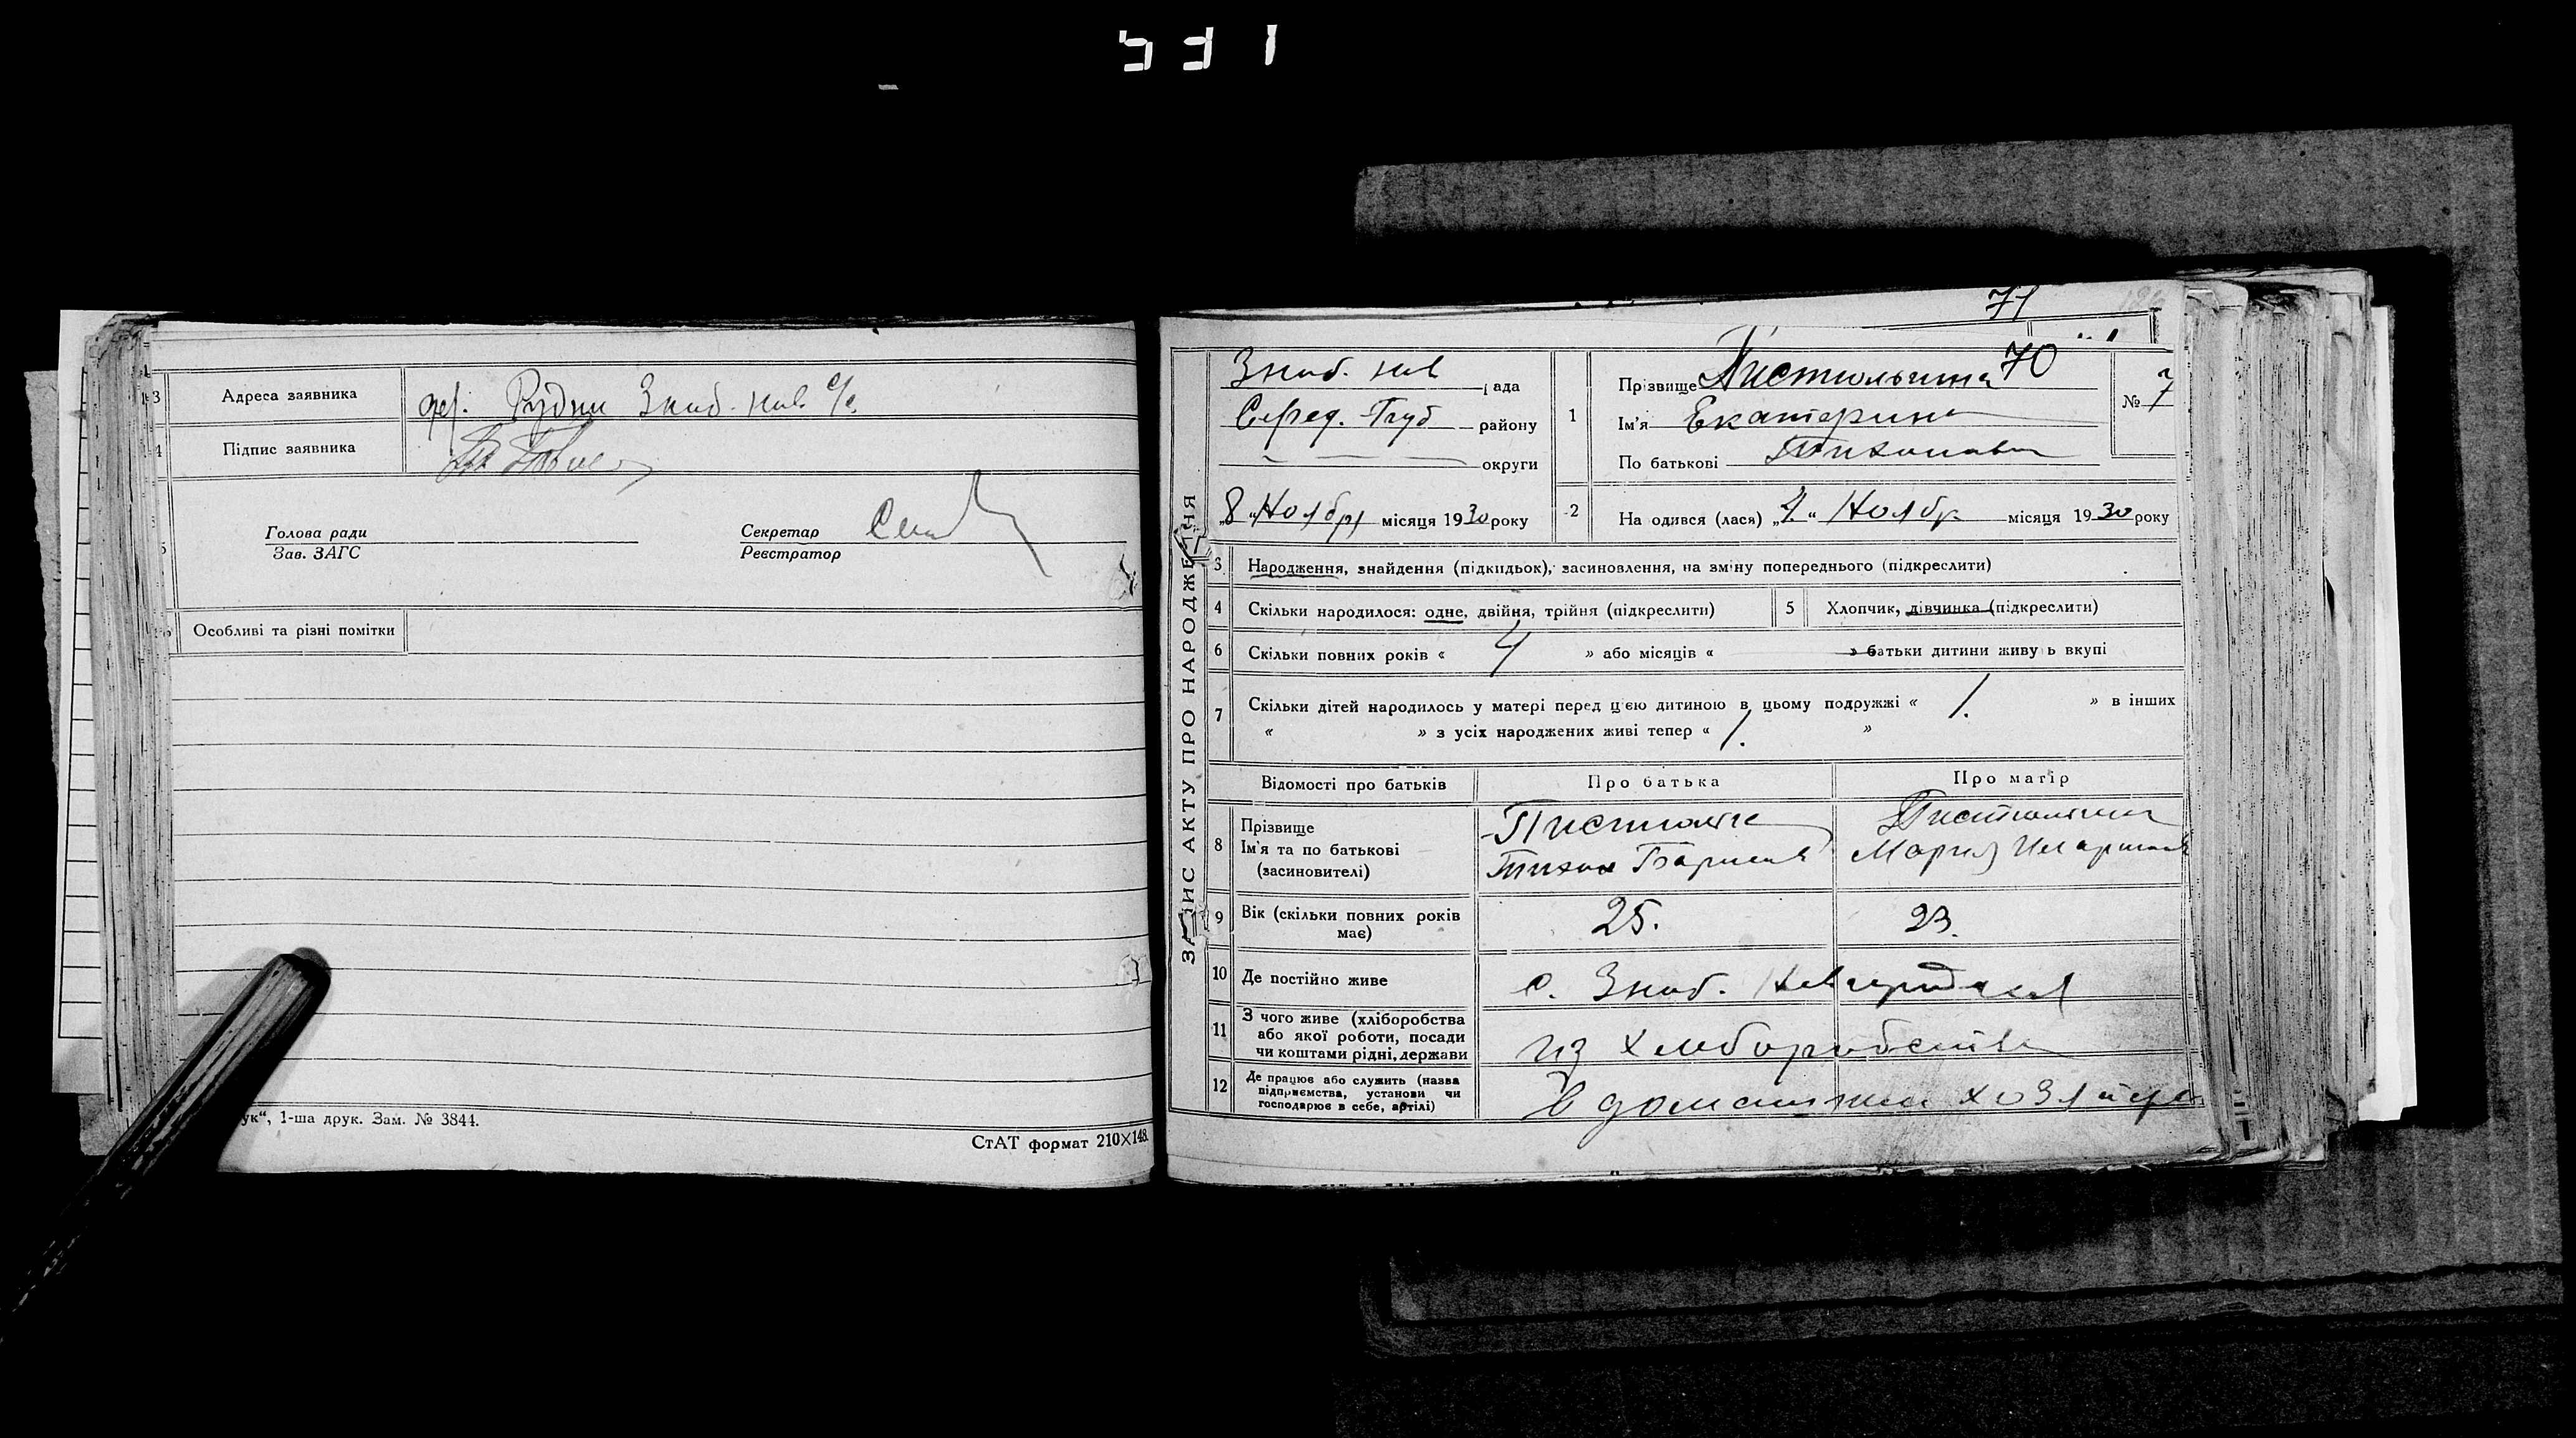 531
3 Адреса заявника дер. Рудни Зноб. нов. с/с
4 Підпис заявника
Голова ради
Зав. ЗАГС
Секретар
Реєстратор
Особливі та різні помітки
ук“, 1-ша друк. Зам. № 3844.
СтАТ формат 210X148.
71
ЗАПИС АКТУ ПРО НАРОДЖЕННЯ
Зноб. нов рада
Серед. Буд району
округи
„8“ Ноября місяця 1930 року
1 Прізвище 70
Ім'я Екатерина
По батькові Тихоновна
№ 7
2 На одився (лася) „4“ Ноябр. місяця 1930 року
3 Народження, знайдення (підкидьок), засиновлення, на зміну попереднього (підкреслити)
4 Скільки народилося: одне, двійня, трійня (підкреслити)
5 Хлопчик, дівчинка (підкреслити)
6 Скільки повних років « 4 » або місяців « » батьки дитини живу ь вкупі
7 Скільки дітей народилось у матері перед цією дитиною в цьому подружжі « 1. » в інших
« » з усіх народжених живі тепер « 1. »
Відомості про батьків Про батька Про матір
8 Прізвище
Ім'я та по батькові
(засиновителі)
Тихон Борисов
Мария
9 Вік (скільки повних років має) 25. 23.
10 Де постійно живе с. Зноб. Новгородская
11 З чого живе (хліборобства
або якої роботи, посади
чи коштами рідні, держави
из хлеборобства
12 Де працює або служить (назва
підприємства, установи чи
господарює в себе, артілі)
В домашнем хозяйстве